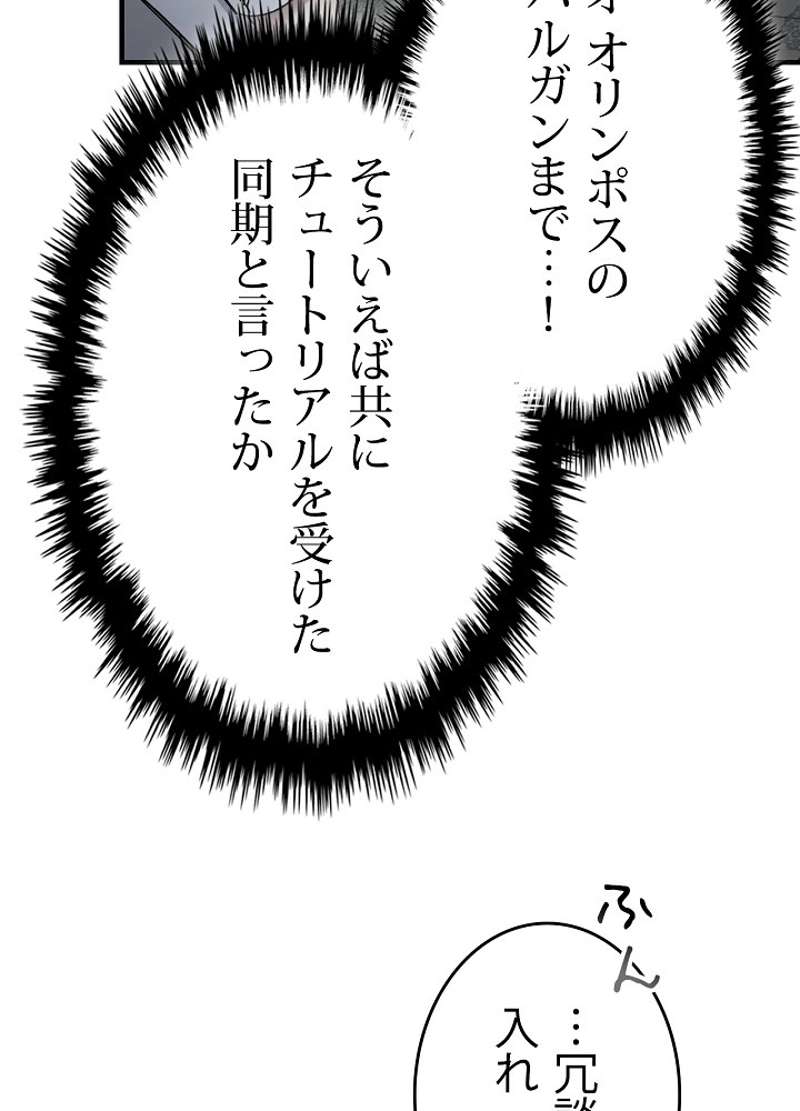 オリンポスの
ルガンまで…!
そういえば共に
チュートリアルを受けた
同期と言ったか
ふん
…冗談
入れ